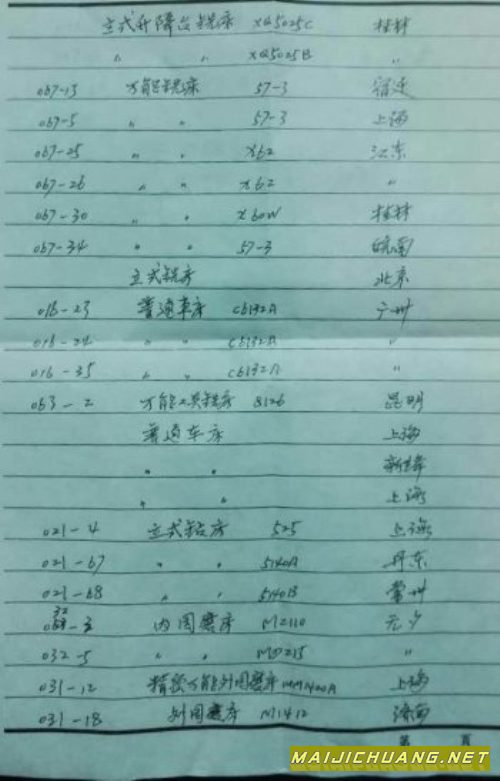 立式升降台铣床 XQ5025C 桂林
〃 〃 XQ5025B 〃
067-13 万能铣床 57-3 宿迁
067-5 〃 〃 57-3 上海
067-25 〃 〃 X62 江东
067-26 〃 〃 X62 〃
067-30 〃 〃 X60W 桂林
067-34 〃 〃 57-3 皖南
立式铣床 北京
016-23 普通车床 C6132A 广州
016-24 〃 〃 C6132A 〃
016-35 〃 〃 C6132A 〃
063-2 万能工具铣床 8126 昆明
普通车床 上海
〃 〃
〃 〃 上海
021-4 立式钻床 525 上海
021-67 〃 〃 5140A 丹东
021-68 〃 〃 5140B 常州
032-3 内圆磨床 M2110
032-5 〃 〃 MD215 〃
031-12 精密万能外圆磨床 MM1420A 上海
031-18 外圆磨床 M1412 济南
第 页
MAIJICHUANG.NET